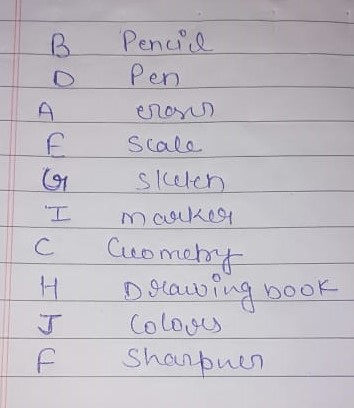 B Pencil
D Pen
A eraser
E Scale
G Sketch
I marker
C Geometry
H Drawing book
J Colours
F Sharpner